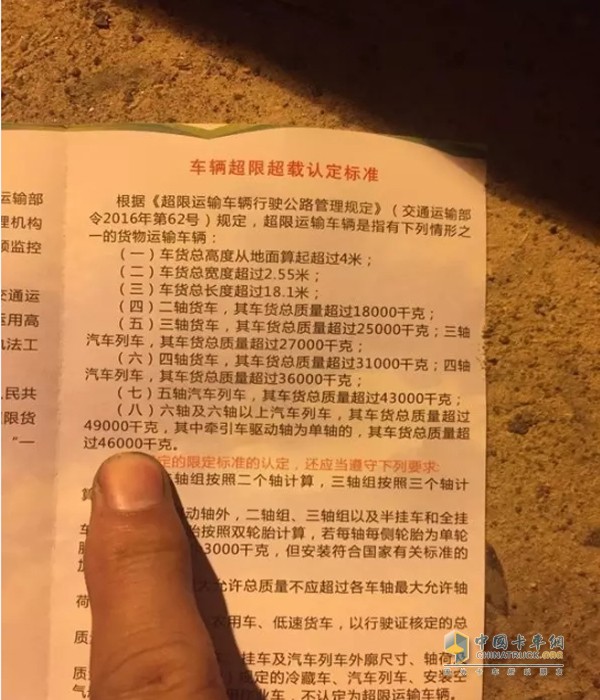 车辆超限超载认定标准
根据《超限运输车辆行驶公路管理规定》（交通运输部
令2016年第62号）规定，超限运输车辆是指有下列情形之
一的货物运输车辆：
（一）车货总高度从地面算起超过4米；
（二）车货总宽度超过2.55米；
（三）车货总长度超过18.1米；
（四）二轴货车，其车货总质量超过18000千克；
（五）三轴货车，其车货总质量超过25000千克；三轴
汽车列车，其车货总质量超过27000千克；
（六）四轴货车，其车货总质量超过31000千克；四轴
汽车列车，其车货总质量超过36000千克；
（七）五轴汽车列车，其车货总质量超过43000千克；
（八）六轴及六轴以上汽车列车，其车货总质量超过
49000千克，其中牵引车驱动轴为单轴的，其车货总质量超
过46000千克。
定的限定标准的认定，还应当遵守下列要求:
轴组按照二个轴计算，三轴组按照三个轴计
动轴外，二轴组、三轴组以及半挂车和全挂
车 胎按照双轮胎计算，若每轴每侧轮胎为单轮
胎 3000千克，但安装符合国家有关标准的
大允许总质量不应超过各车轴最大允许轴
荷
农用车、低速货车，以行驶证核定的总
质
挂车及汽车列车外廓尺寸、轴荷
质 规定的冷藏车、汽车列车、安装空
业车，不认定为超限运输车辆。
运输部
理机构
频监控
交通运
运用高
执法工
人民共
有限货
“一
中国卡车网
CHINATRUCK.ORG